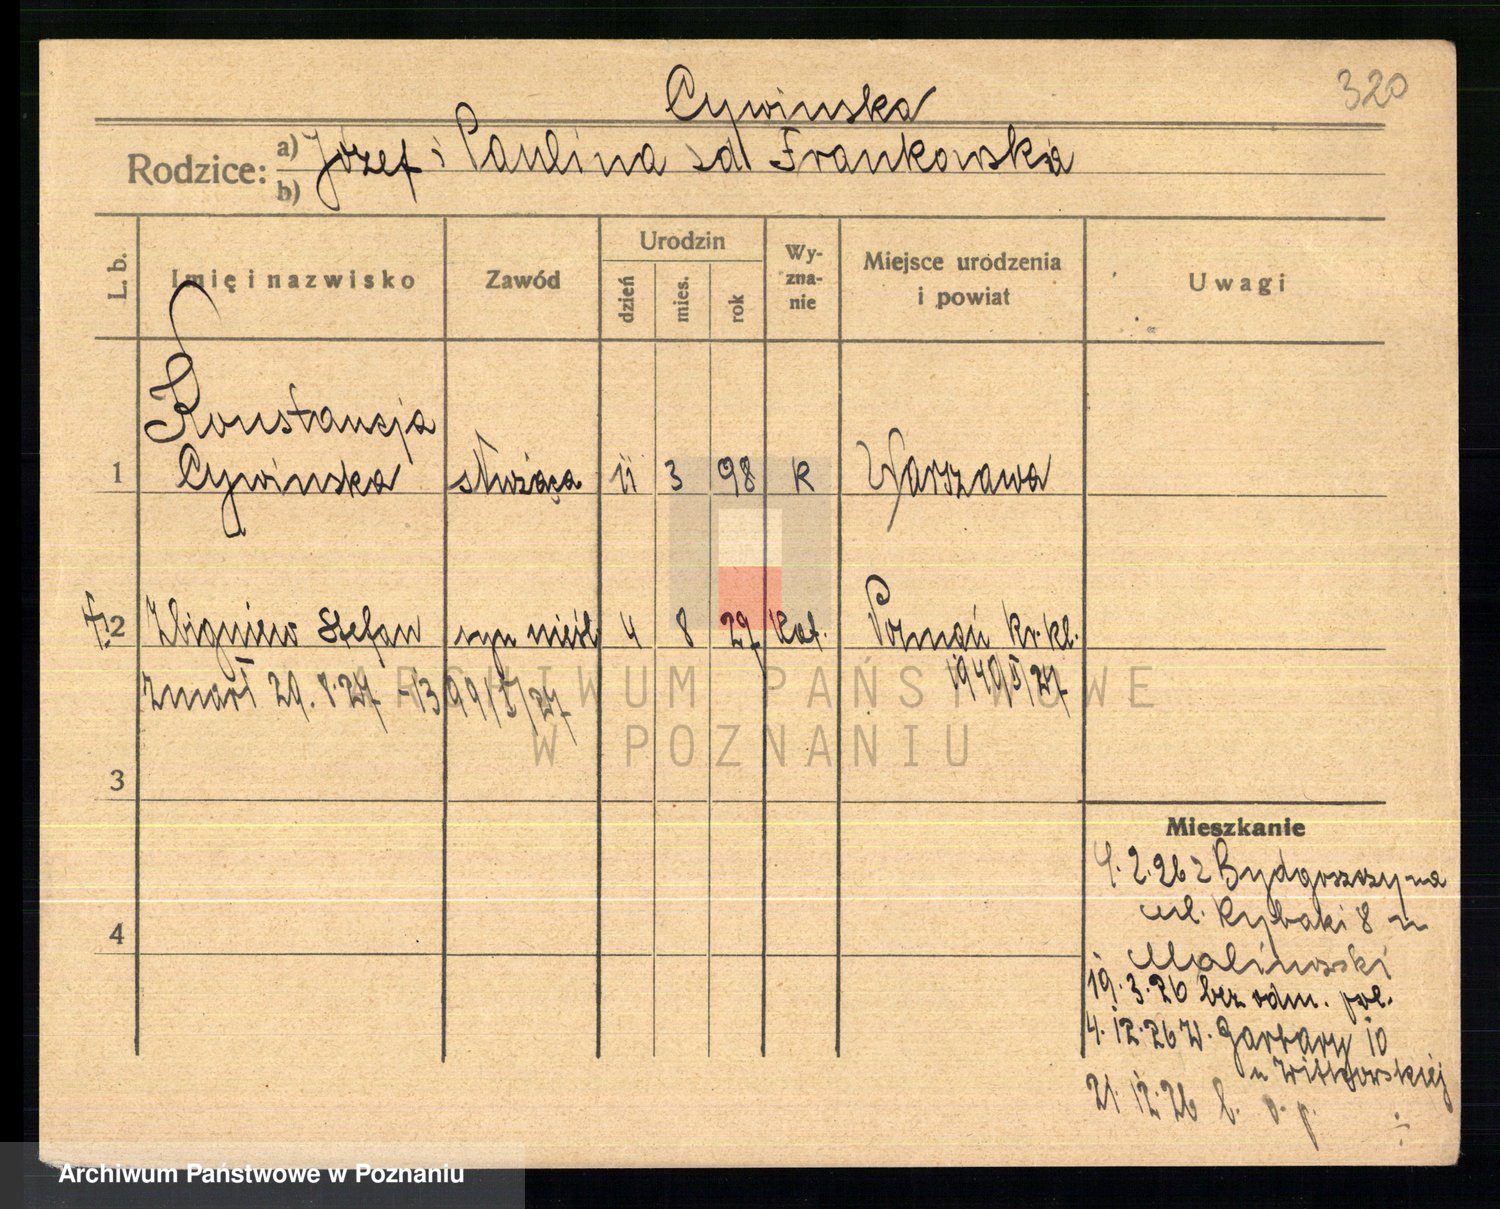 320
Cywinska
Rodzice: a) Józef i Paulina zd Frankowska
b)
L. b.
Imię i nazwisko
Zawód
Urodzin
dzień
mies.
rok
Wy-
zna-
nie
Miejsce urodzenia
i powiat
Uwagi
Konstancja
1 Cywinska służąca 11 3 98 k Warszawa
2 Zbigniew Stefan syn nieśl 4 8 27 kat. Poznań
zmarł 29. 8. 27
ARCHIWUM PAŃSTWOWE
W POZNANIU
3
4
Mieszkanie
4. 2. 26 z Bydgoszczy na
ul. Rybaki 8 u
Malinowski
19. 3. 26 bez odm. pol.
4. 12. 26 W. Garbary 10
u Witkowskiej
21. 12. 26 b. o. p.
Archiwum Państwowe w Poznaniu